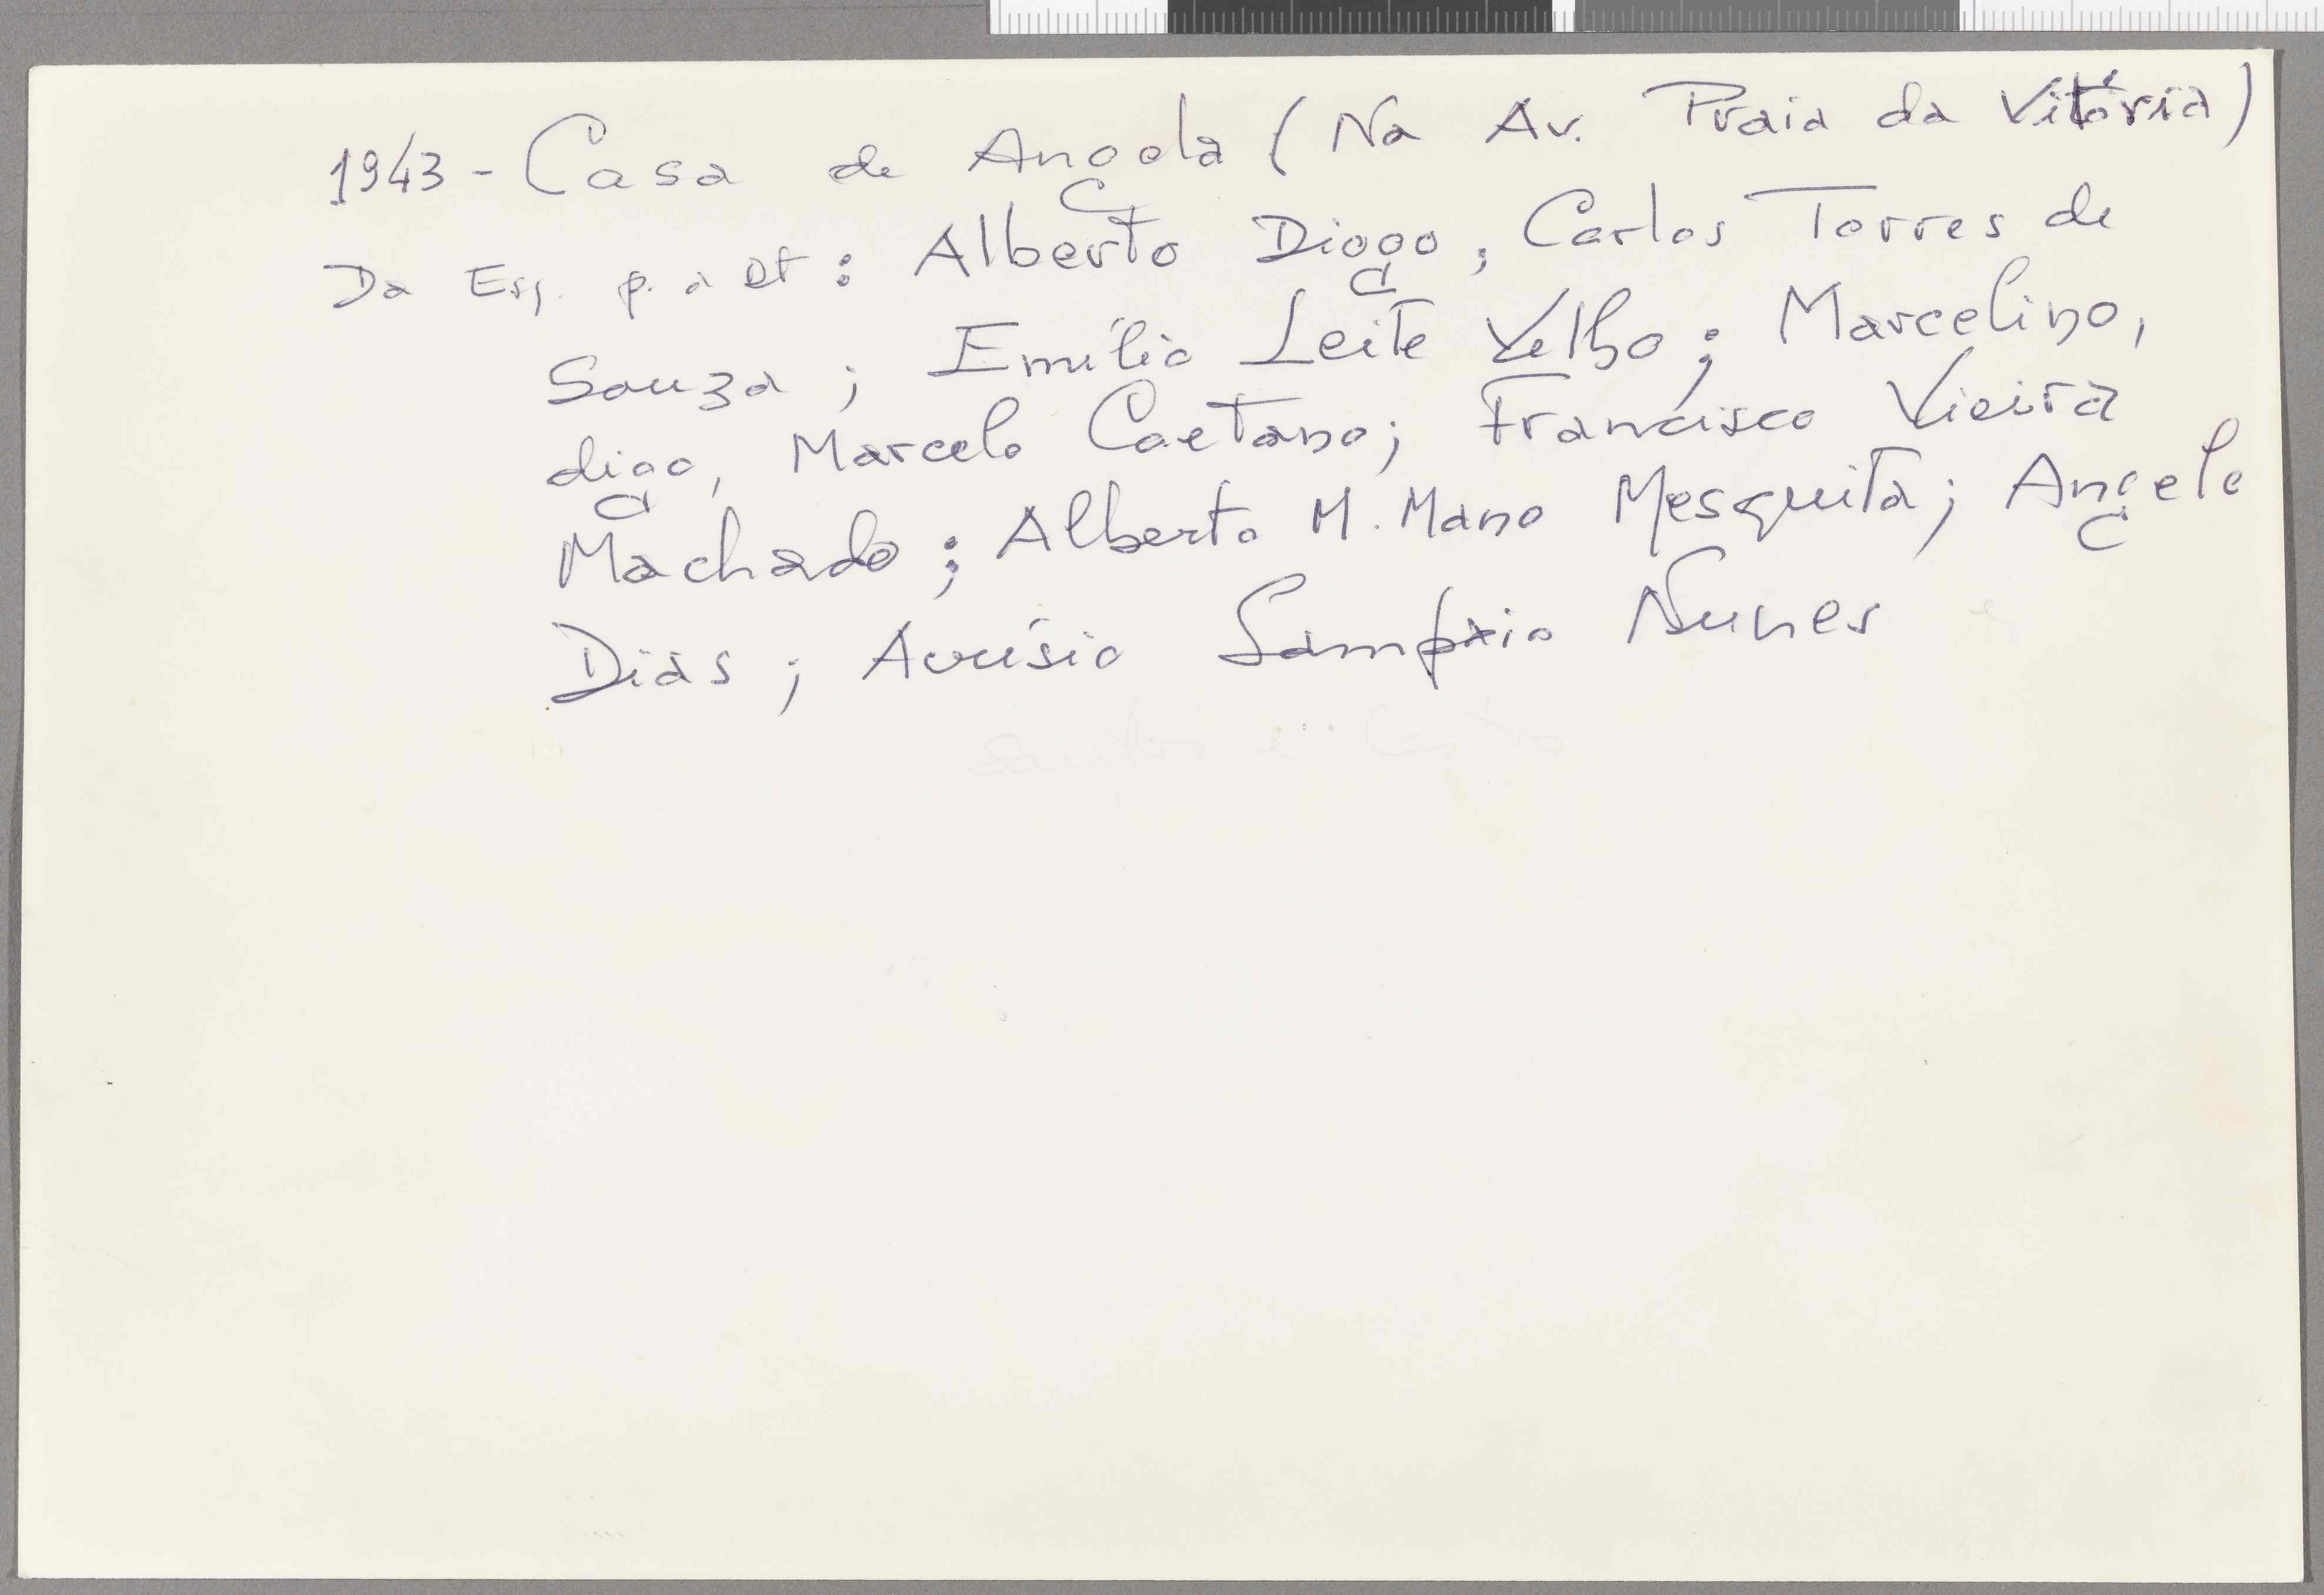 1943 - Casa de Angola (Na Av. Praia da Vitória)
Da Esq. p. a Dt : Alberto Diogo, Carlos Torres de
Souza ; Emílio Leite Velho ; Marcelino,
digo, Marcelo Caetano ; Francisco Vieira
Machado ; Alberto M. Mano Mesquita ; Angelo
Dias ; Sampaio Nunes